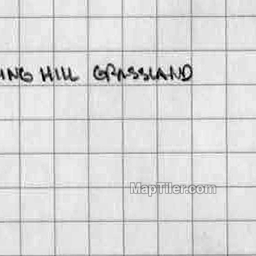 ING HILL GRASSLAND
MapTiler.com